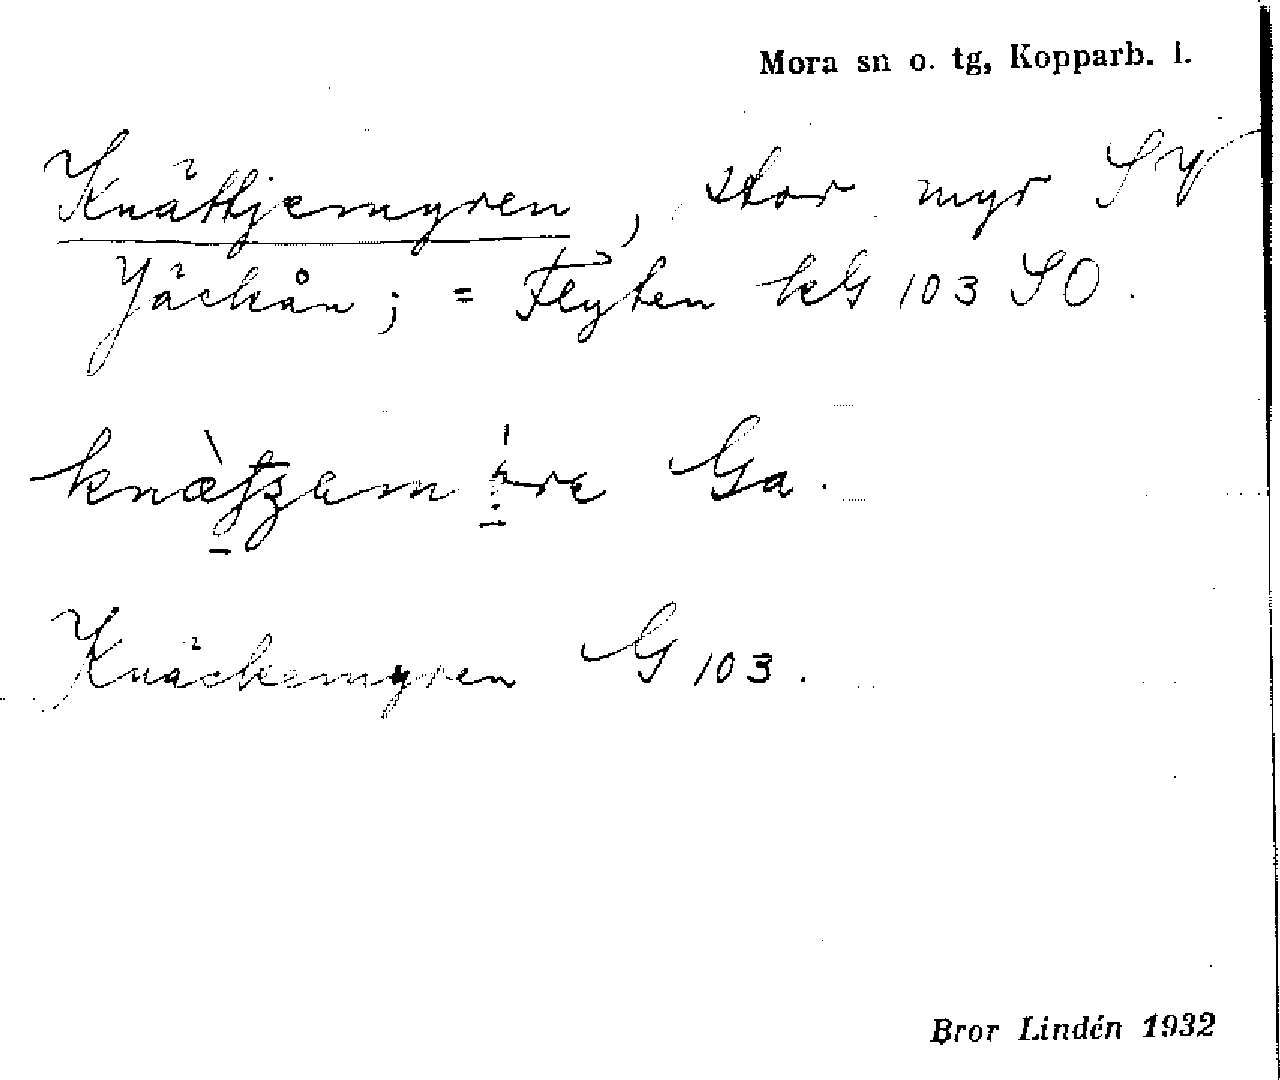 Mora sn o. tg, Kopparb. l.
Knättjemyren, stor myr SV
Jäckån; = Flyten kG 103 SO.
Ga.
Knäckemyren G 103.
Bror Lindén 1932